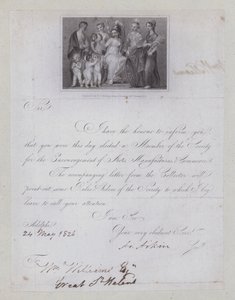 Sir,
I have the honour to inform you
that you were this day elected a Member of the Society
for the Encouragement of Arts, Manufactures & Commerce.
The accompanying letter from the Collector will
point out some of the Rules of the Society to which I beg
leave to call your attention.
I am Sir
Your very obedient Servt
Adelphi A. Aikin Secy
24 May 1826
To
Wm Williams Esqr
Great St Helens